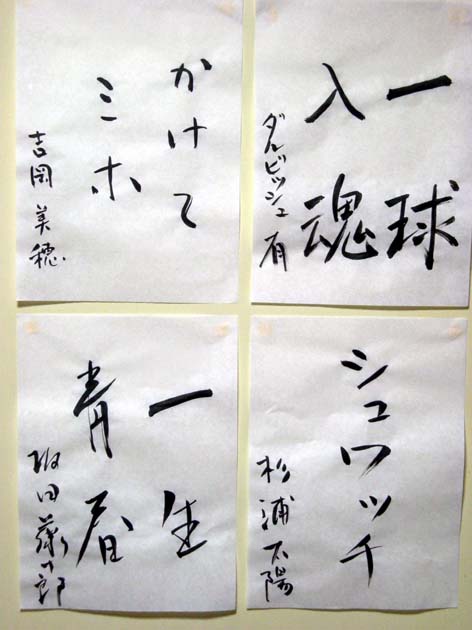 一球
入魂
ダルビッシュ 有
かけて
ミホ
吉岡 美穂
シュワッチ
杉浦太陽
一生
青春
坂田藤十郎